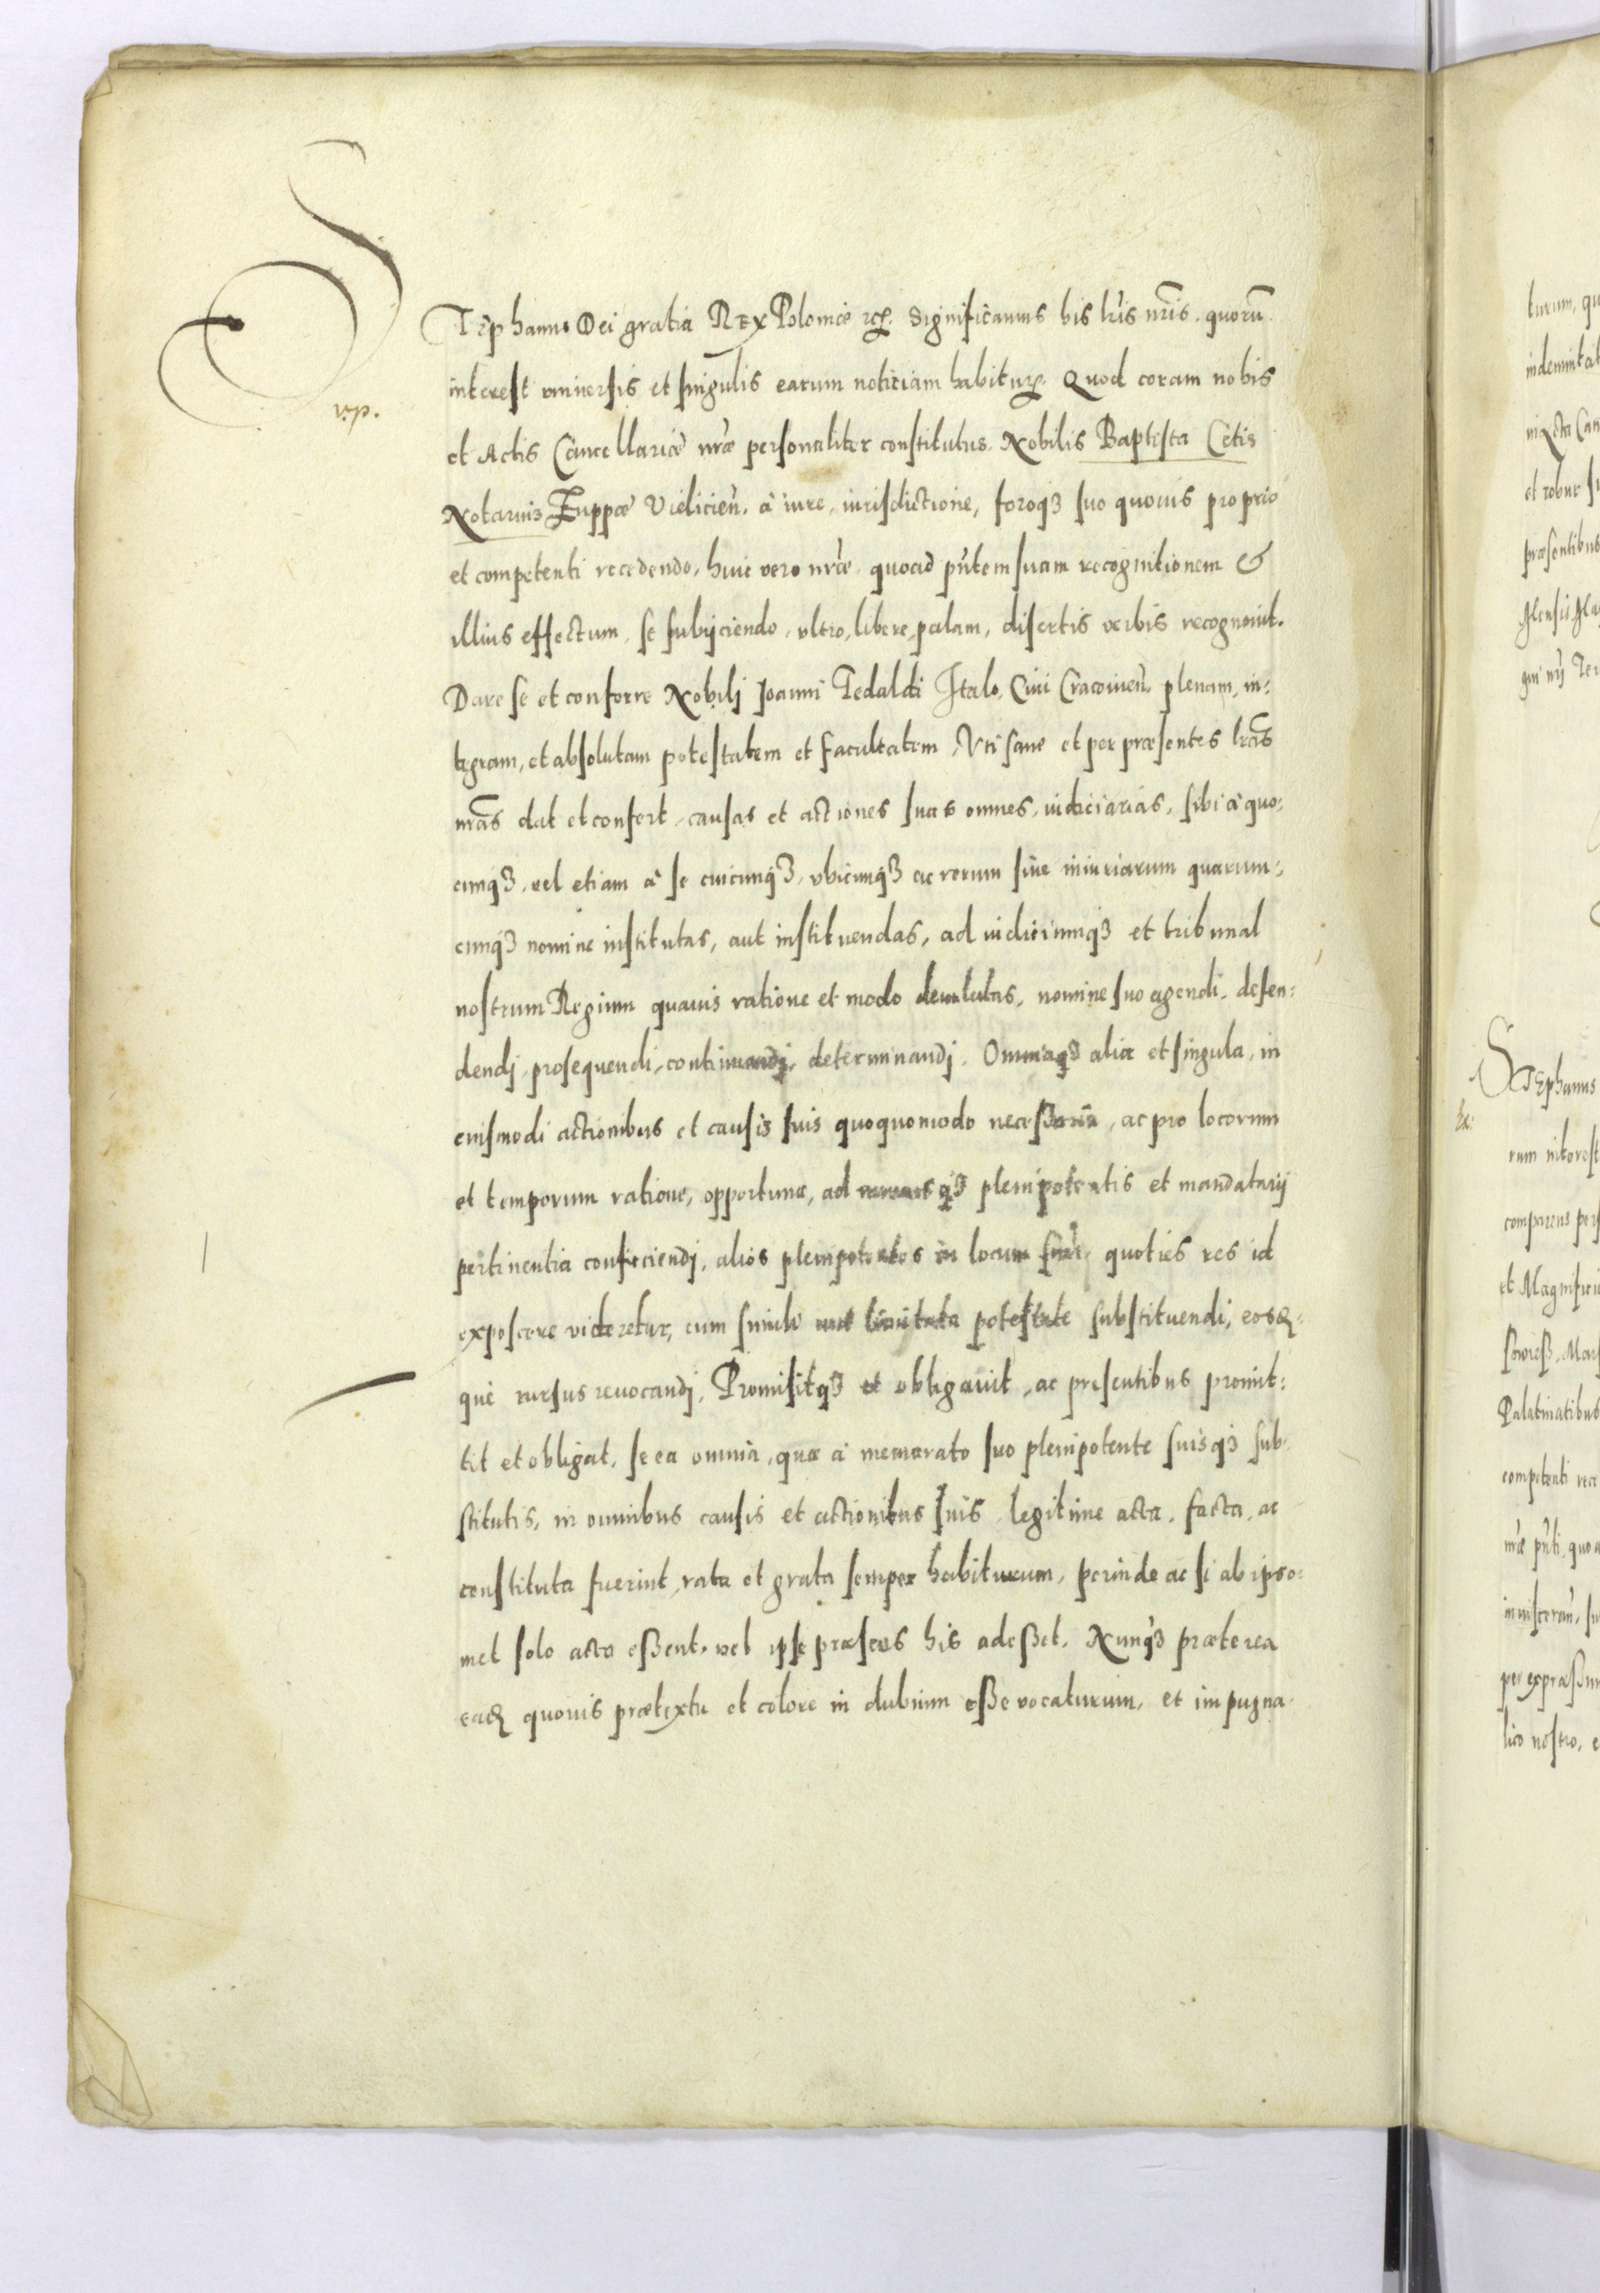 STEphanus Dei gratia REx Poloniæ etc. Significamus his lr̃is nr̃is. quorũ
interest vniuersis et singulis earum notitiam habitur. Quod coram nobis
vp.
et Actis Cancellariæ nr̃æ personaliter constitutus. Nobilis Baptista Cetis
Notarius Zuppæ Vielicień. à iure, iurisdictione, foroq₃ suo quouis proprio
et competenti recedendo, huic vero nr̃æ quoad pn̄tem suam recognitionem &
illius effectum, se subÿciendo, vltro, libere, palam, disertis verbis recognouit.
Dare se et conferre Nobili Joanni Tedaldi Italo, Ciui Cracouień. plenam, in:
tegram, et absolutam potestatem et facultatem, Vti sane et per præsentes lr̃as
nr̃as dat et confert, causas et actiones suas omnes, iudiciarias, sibi à quo:
cunq₃, vel etiam à se cuicunq₃, vbicunq₃ ac rerum siue iniuriarum quarum:
cunq₃ nomine institutas, aut instituendas, ad iudiciumq₃ et tribunal
nostrum Regium quauis ratione et modo deuolutas, nomine suo agendi, defen:
dendj, prosequendi, continuandj, determinandj. Omniaq₃ alia et singula, in
eiusmodi actionibus et causis suis quoquomodo necessaria, ac pro locorum
et temporum ratione, opportuna, ad q₃ plenipotentis et mandatarij
pertinentia conficiendj, alios plenipotentes in locum sui quoties res id
exposcere videretur, cum simili limitata potestate substituendi, eosq:
que rursus reuocandj, Promisitq₃ et obligauit, ac presentibus promit:
tit et obligat, se ea omnia, quæ à memorato suo plenipotente suisq₃ sub:
stitutis, in omnibus causis et actionibus suis legitime acta, facta, ac
constituta fuerint, rata et grata semper habiturum, perinde ac si ab ipso:
met solo acta essent, vel ipse præsens his adesset. Nunq₃ præterea
eadē quouis prætextu et colore in dubium esse vocaturum, et impugna:
turum, qu
et robur su
præsentibus
STEphanus
rum interest
comparens pers
et Magnifici
Palatinatibus
competenti rece
nr̃æ pn̄ti, quoa
per expressum
lico nostro, e